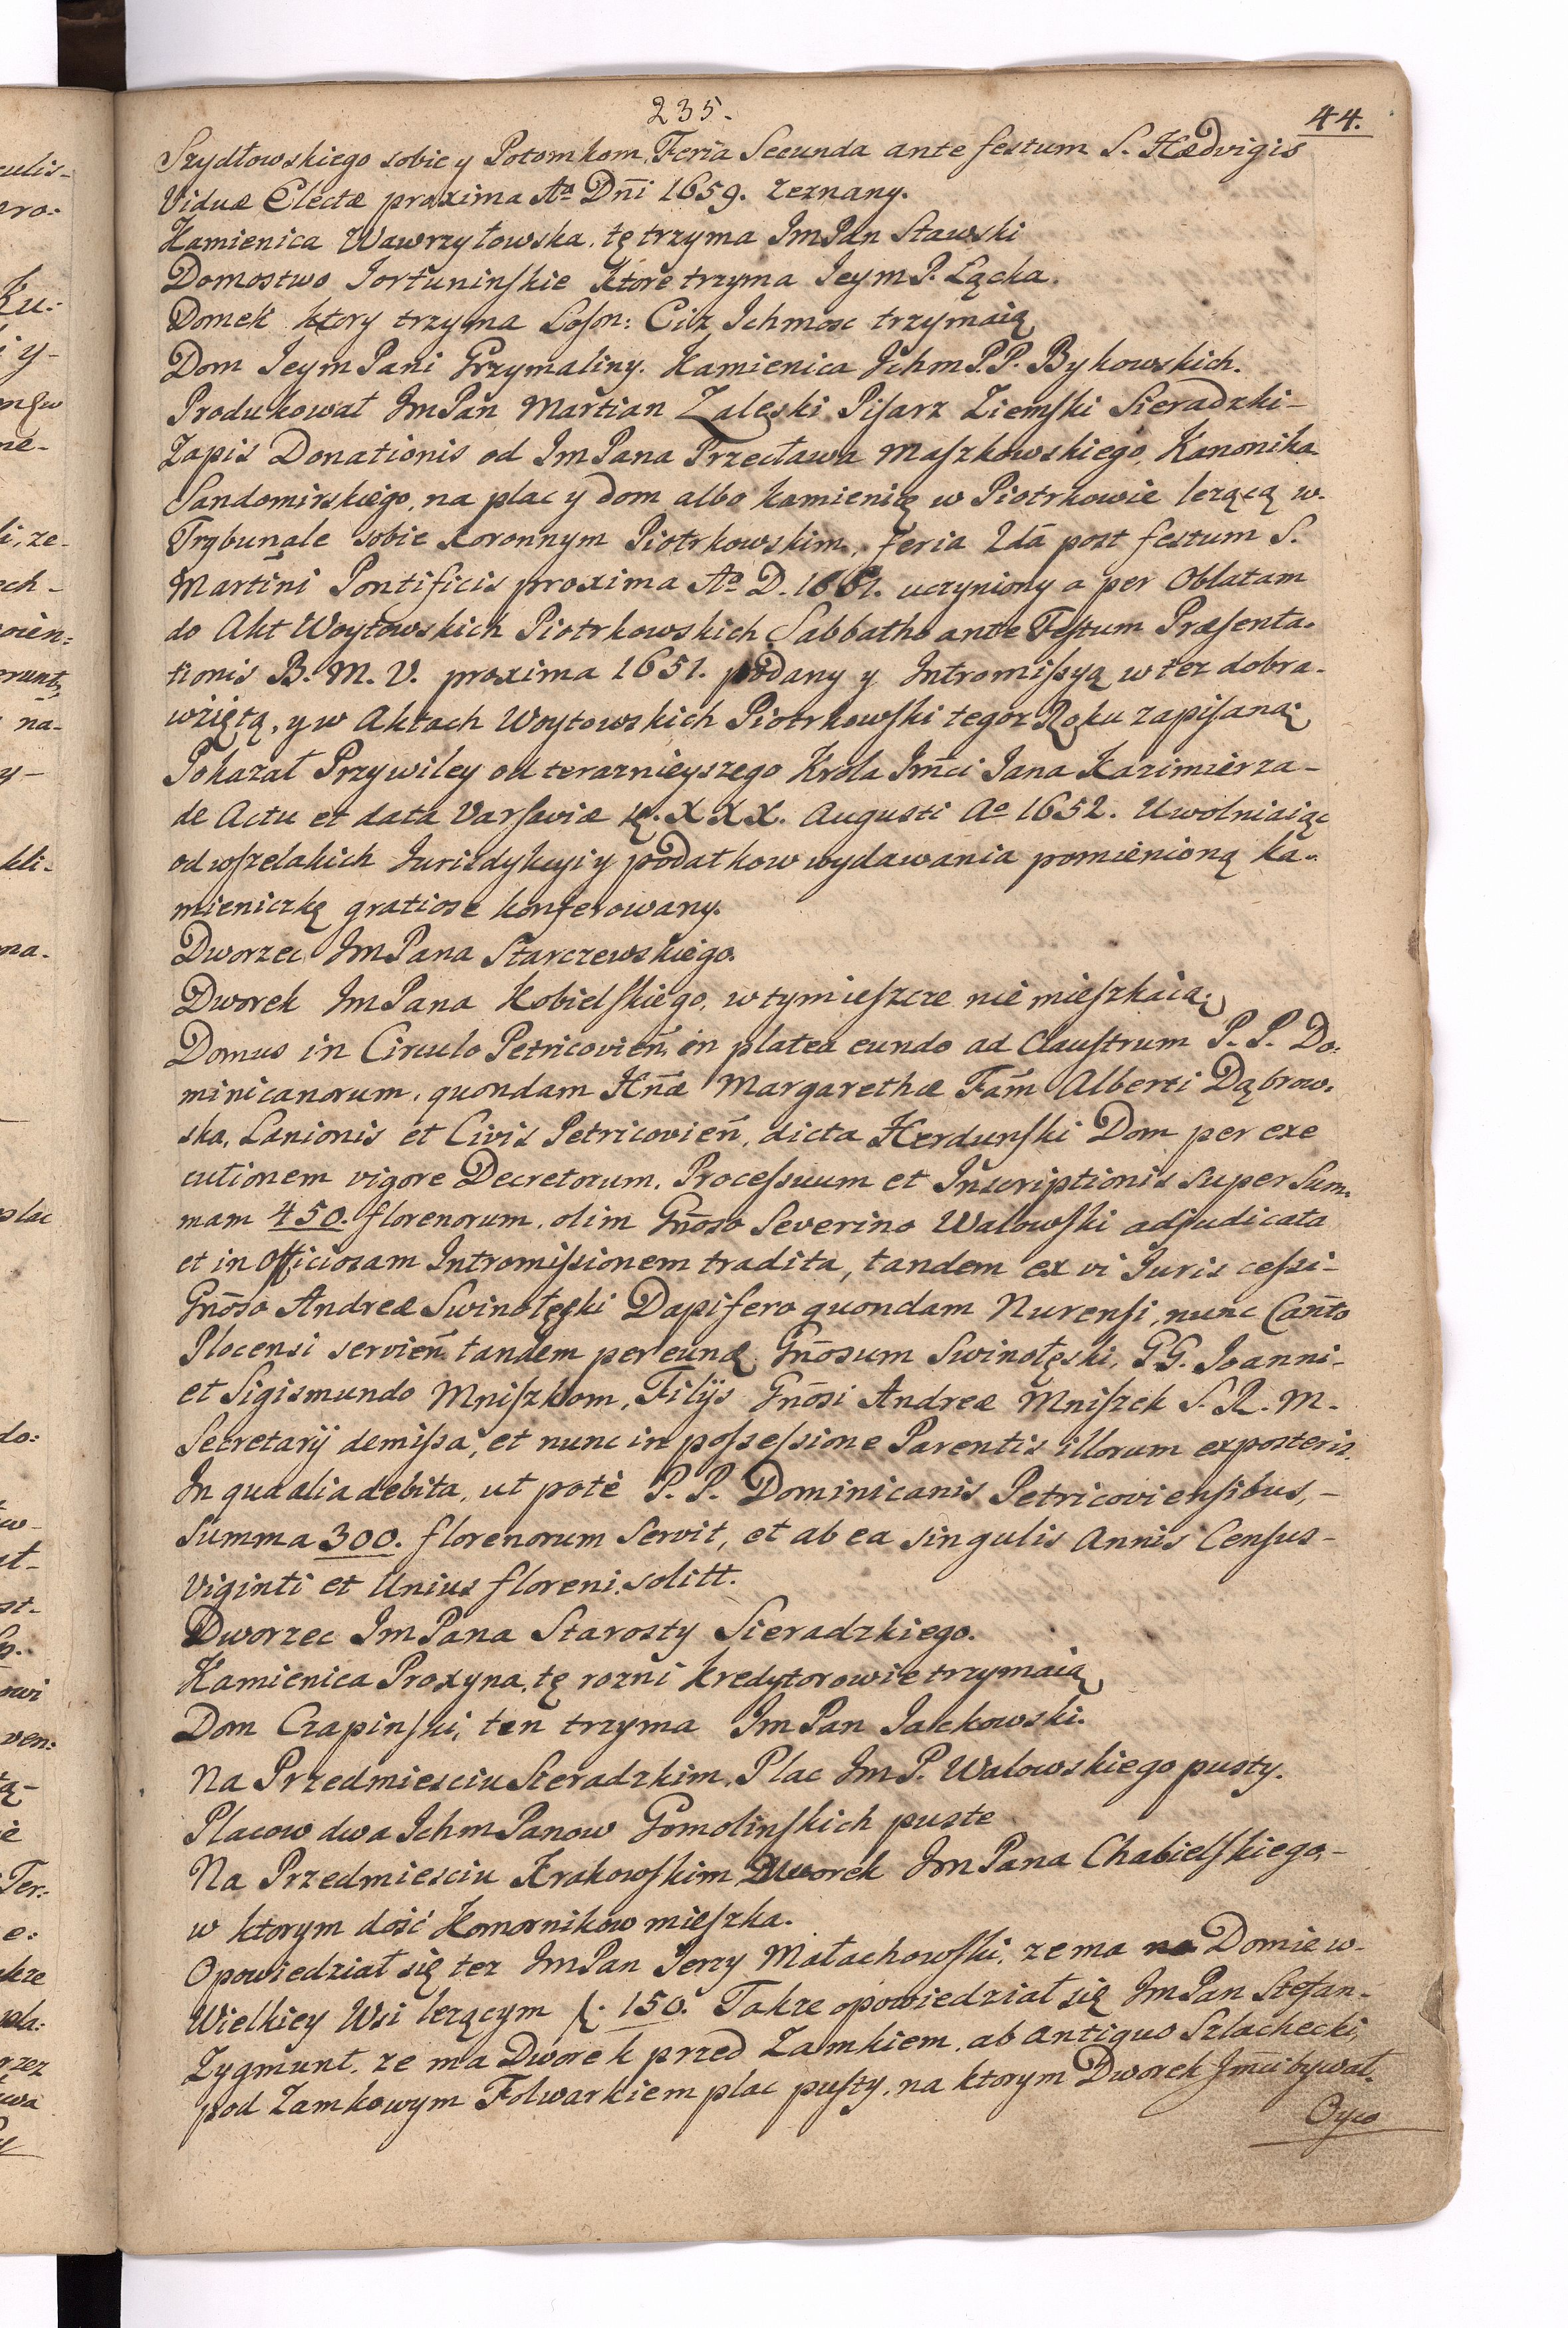 235.
44.
Szydłowskiego sobie y Potomkom, Feria Secunda ante festum S. Hædvigis
Viduæ Electæ proxima Ao Dni 1659. zeznany.
Kamienica Wawrzyłowska, tę trzyma ImPan Stawski
Domostwo Fortuninskie ktore trzyma JeymP. Łącka.
Domek ktory trzyma Loson: Ciż Ichmosc trzymaią
Dom JeymPani Grzymaliny. Kamienica IchmP.P. Bykowskich.
Produkował ImPan Martian Zaleski Pisarz Ziemski Sieradzki-
Zapis Donationis od ImPana Przecława Maszkowskiego, Kanonika
Sandomirskiego, na plac y dom albo kamienię w Piotrkowie lezącą w.
Trybunale sobie Koronnym Piotrkowskim, feria 2dã post festum S.
Martini Pontificis proxima Ao D. 1651. uczyniony a per Oblatam
do Akt Woytowskich Piotrkowskich Sabbatho ante Festum Præsenta.
tionis B. M. V. proxima 1651. podany y Intromissyą w tez dobra.
wźiętą, y w Aktach Woytowskich Piotrkowski tegoz Roku zapisaną
Pokazał Przywiley od teraznieyszego Krola Jmci Jana Kazimierza-
de Actu et data Varsaviæ XXX. Augusti Ao 1652. Uwolniaiąc
od wszelakich Jurizdykcyi y podatkow wydawania pomienioną ka.
mieniczkę gratiose konferowany.
Dworzec ImPana Starczewskiego.
Dworek ImPana Kobielskiego, w tym ieszcze nie mieszkaią
Domus in Circulo Petricovien in platea eundo ad Claustrum P. P. Do:
minicanorum, quondam Hnæ Margarethæ Fam Alberti Dąbrow.
ska, Lanionis et Civis Petricovien, dicta Herdunski Dom per exe
cutionem vigore Decretorum, Processuum et Inscriptionis super Sum.
mam 450. florenorum, olim Gnoso Severino Walowski adjudicata
et in Officiosam Intromissionem tradita, tandem ex vi Juris cessi-
Gnoso Andreæ Swinołęski Dapifero quondam Nurensi, nunc Canto
Plocensi servien tandem per eund Gnosum Swinołęski, GG. Joanni-
et Sigismundo Mniszkom, Filijs Gnosi Andreæ Mniszek S. R. M.
Secretarij demissa, et nunc in possessione Parentis illorum ex posteris.
In qua alia debita, ut potè P. P. Dominicanis Petricoviensibus,-
Summa 300. florenorum servit, et ab ea singulis Annis Census-
Viginti et Unius floreni solitt.
Dworzec ImPana Starosty Sieradzkiego.
Kamienica Proxyna, tę rozni kredytorowie trzymaią
Dom Czapinski, ten trzyma ImPan Jackowski.
Na Przedmiesciu Sieradzkim, Plac ImP. Walowskiego pusty.
Placow dwa IchmPanow Gomolinskich puste
Na Przedmiesciu Krakowskim Dworek ImPana Chabielskiego,-
w ktorym dość Komornikow mieszka.
Opowiedział się tez ImPan Jerzy Małachowski, ze ma na Domie w-
Wielkiey Wsi lezącym f. 150. Takze opowiedział się ImPan Stefan-
Zygmunt, ze ma Dworek przed Zamkiem, ab antiquo Szlachecki,
pod Zamkowym Folwarkiem plac pusty, na ktorym Dworek Jmci bywał.
Oyco